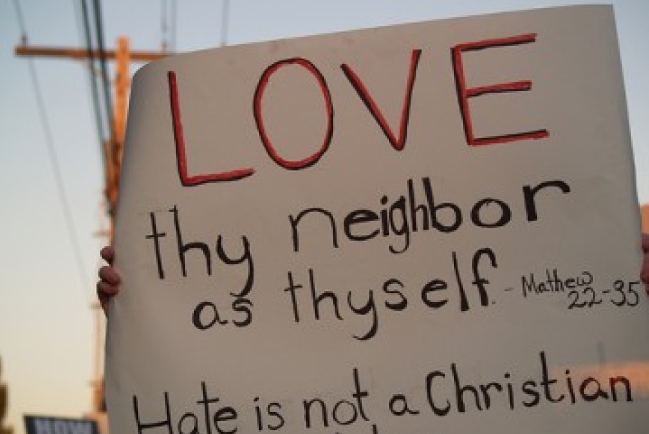 LOVE
thy neighbor
as thyself. - Mathew
22-35
Hate is not a Christian
HOW